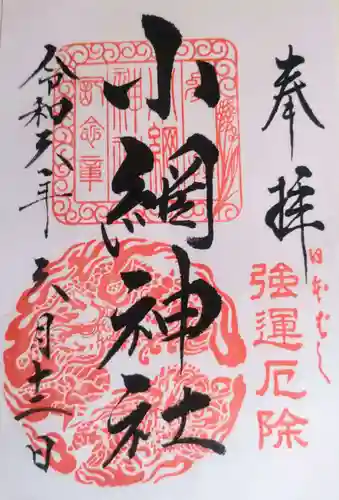 奉拝
日本ばし
強運厄除
小網神社
令和六年
六月十二日